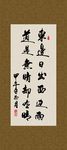 東邊日出西邊雨
道是無晴却有晴
甲午年